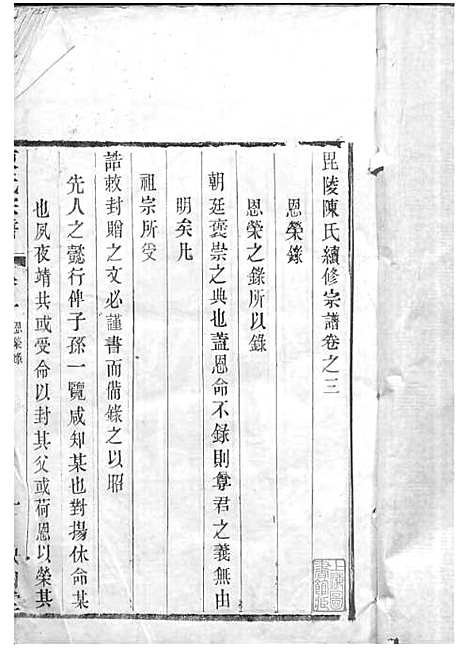 毘陵陳氏續修宗譜卷之三
恩榮錄
恩榮之錄所以錄
朝廷褒崇之典也蓋恩命不錄則尊君之義無由
明矣凡
祖宗所受
誥敕封贈之文必謹書而備錄之以昭
先人之懿行俾子孫一覽咸知某也對揚休命某
也夙夜靖共或受命以封其父或荷恩以榮其
恩榮錄